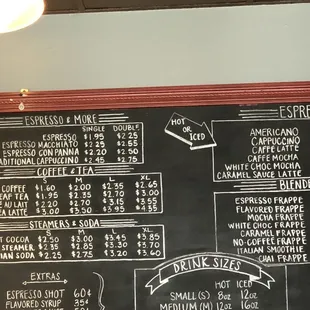 ESPRESSO & MORE
SINGLE DOUBLE
ESPRESSO $1.95 $2.25
ESPRESSO MACCHIATO $2.25 $2.55
ESPRESSO CON PANNA $2.20 $2.50
TRADITIONAL CAPPUCCINO $2.45 $2.75
COFFEE & TEA
S M L XL
COFFEE $1.60 $2.00 $2.35 $2.65
LEAF TEA $1.95 $2.35 $2.70 $3.00
AU LAIT $2.20 $2.70 $3.15 $3.55
LATTE $3.00 $3.50 $3.95 $4.35
STEAMERS & SODA
S M L XL
HOT COCOA $2.50 $3.00 $3.45 $3.85
STEAMER $2.35 $2.85 $3.30 $3.70
ITALIAN SODA $2.25 $2.75 $3.20 $3.60
EXTRAS
ESPRESSO SHOT 60¢
FLAVORED SYRUP 35¢
HOT OR ICED
ESPRE
AMERICANO
CAPPUCCINO
CAFFE LATTE
CAFFE MOCHA
WHITE CHOC MOCHA
CARAMEL SAUCE LATTE
BLENDE
ESPRESSO FRAPPE
FLAVORED FRAPPE
MOCHA FRAPPE
WHITE CHOC FRAPPE
CARAMEL FRAPPE
NO-COFFEE FRAPPE
ITALIAN SMOOTHIE
CHAI FRAPPE
DRINK SIZES
HOT ICED
SMALL (S) 8oz 12oz
MEDIUM (M) 12oz 16oz